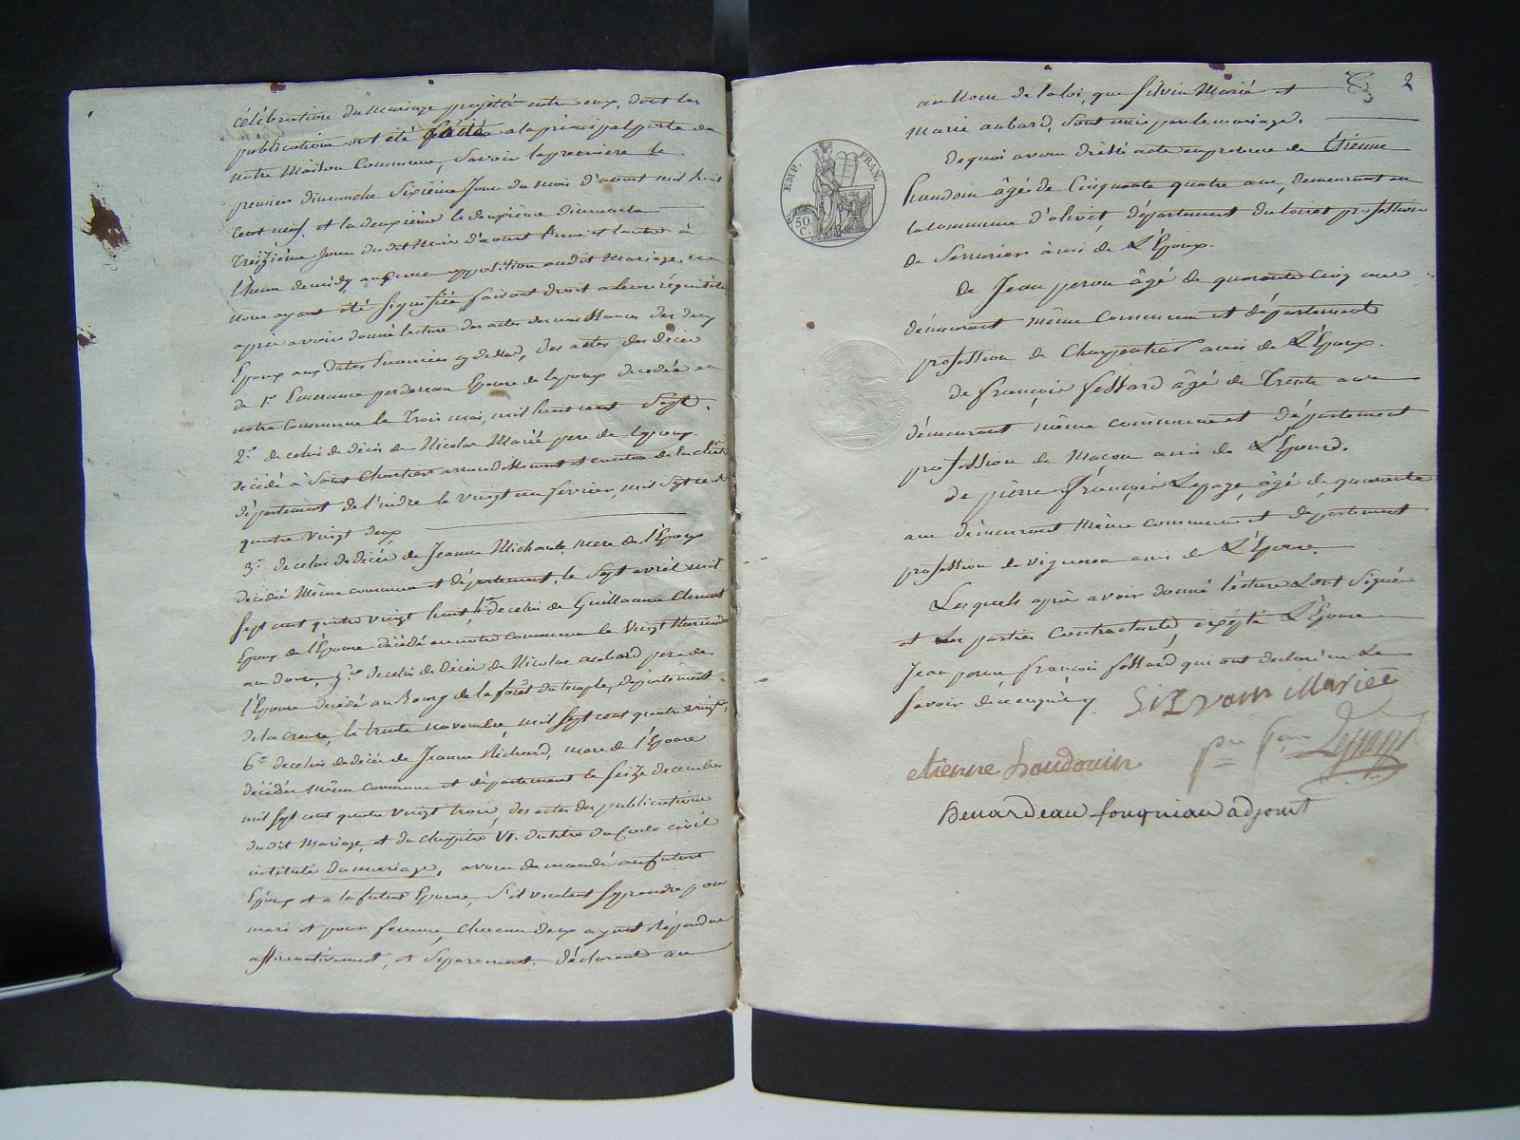 célébration du mariage projetté entre eux, dont les
publications ont été faites a la principal porte de
notre Maison Commune, Savoir la premiere le
premier dimanche Sixième Jour du mois d'aoust mil huit
cent neuf, et la deuxième le deuxième dimanche
treizième Jour dudit mois d'aoust Année et l'autre à
l'heure de midy aucune opposition audit Mariage, ne
nous ayant été signifiée faisant droit a leur réquisition
apres avoir donné lecture des actes de naissance des deux
Epoux aux dattes Enoncées cy dessus, des actes des décès
de 1.° perdereau Epouse de lepoux decedée en
notre Commune le trois mai, mil huit cent Sept.
2.° de celui de décès de Nicolas Marié pere de lepoux
décédé à Saint Chartier arrondissement et canton de la châtre
département de l'indre le vingt un fevrier, mil Sept cent
quatre vingt deux
3.° de celui de décès de Jeanne Michault, mere de l'Epoux
décédée même commune et département, le Sept avril mil
Sept cent quatre vingt huit, 4.° de celui de Guillaume Clement
Epoux de l'Epouse décédé en notre commune le vingt
an douze, 5.° de celui de décès de Nicolas aubard pere de
l'Epouse décédé au Bourg de la forêt du temple, département
de la creuse, le trente novembre, mil sept cent quatre vingt,
6.° de celui de décès de Jeanne Richard, mere de l'Epouse
décédée même commune et département le Seize decembre
mil sept cent quatre vingt trois, des actes des publications
du dit Mariage, et du chapitre VI. du titre du Code civil
intitulé du mariage, avons demandé au futur
Epoux et a la future Epouse, S'il veulent se prendre pour
mari et pour femme, chacun d'eux ayant répondu
affirmativement, et Séparement, déclarons au
2
au Nom de la loi, que Silvin Marié et
Marie aubard, Sont unis par le mariage.
EMP. FRAN.
50 C.
de quoi avons dréssé acte en présence de Etienne
haudoin âgé de Cinquante quatre ans, demeurant en
la commune d'olivet, département du loiret profession
de Serrurier ami de L'Epoux.
de Jean perou âgé de quarante cinq ans
démeurant même Commune et département
profession de Charpentier ami de L'Epoux.
de françois fossard âgé de trente ans
démeurant même commune et département
profession de Macon ami de L'Epouse.
de pierre françois Lepage, âgé de quarante
ans démeurant même commune et département
profession de vigneron ami de L'Epouse.
Lesquels après avoir donné lécture L'ont Signée
et les parties Contractante, exépté L'Epouse
Jean perou françois fossard qui ont declaré ne le
Savoir de ce enquis
Silvain Mariée
etienne haudouin
pre fcois Lepage
Benardeau fougniau adjoint